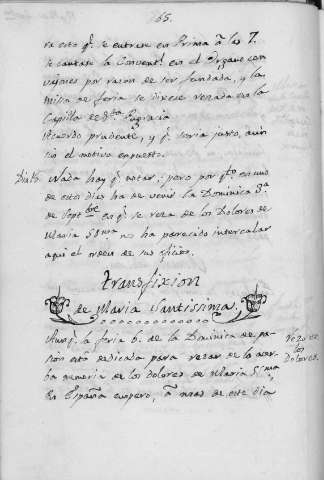 165.
ra esto q.e se entrase en Prima a las 7.
se cantase la Convent.l en el Organo con
vajones por razon de ser fundada, y la
misa de feria se dixese rezada en la
Capilla de S.ta Engracia
Acuerdo prudente, y q.e seria justo, aun
sin el motivo expuesto.
Dia 15. Nada hay q.e notar; pero por q.to en uno
de estos dias ha de venir la Dominica 3.a
de Sept.bre en q.e se reza de los Dolores de
Maria SS.ma no ha parecido intercalar
aqui el rezo de sus oficios.
Transfixion
de Maria Santissima.
Aunq.e la feria 6. de la Dominica de pa-
sion está dedicada para rezar de la acer-
ba memoria de los dolores de Maria SS.ma
En España empero, a mas de este dia
Rezo de
los
Dolores.